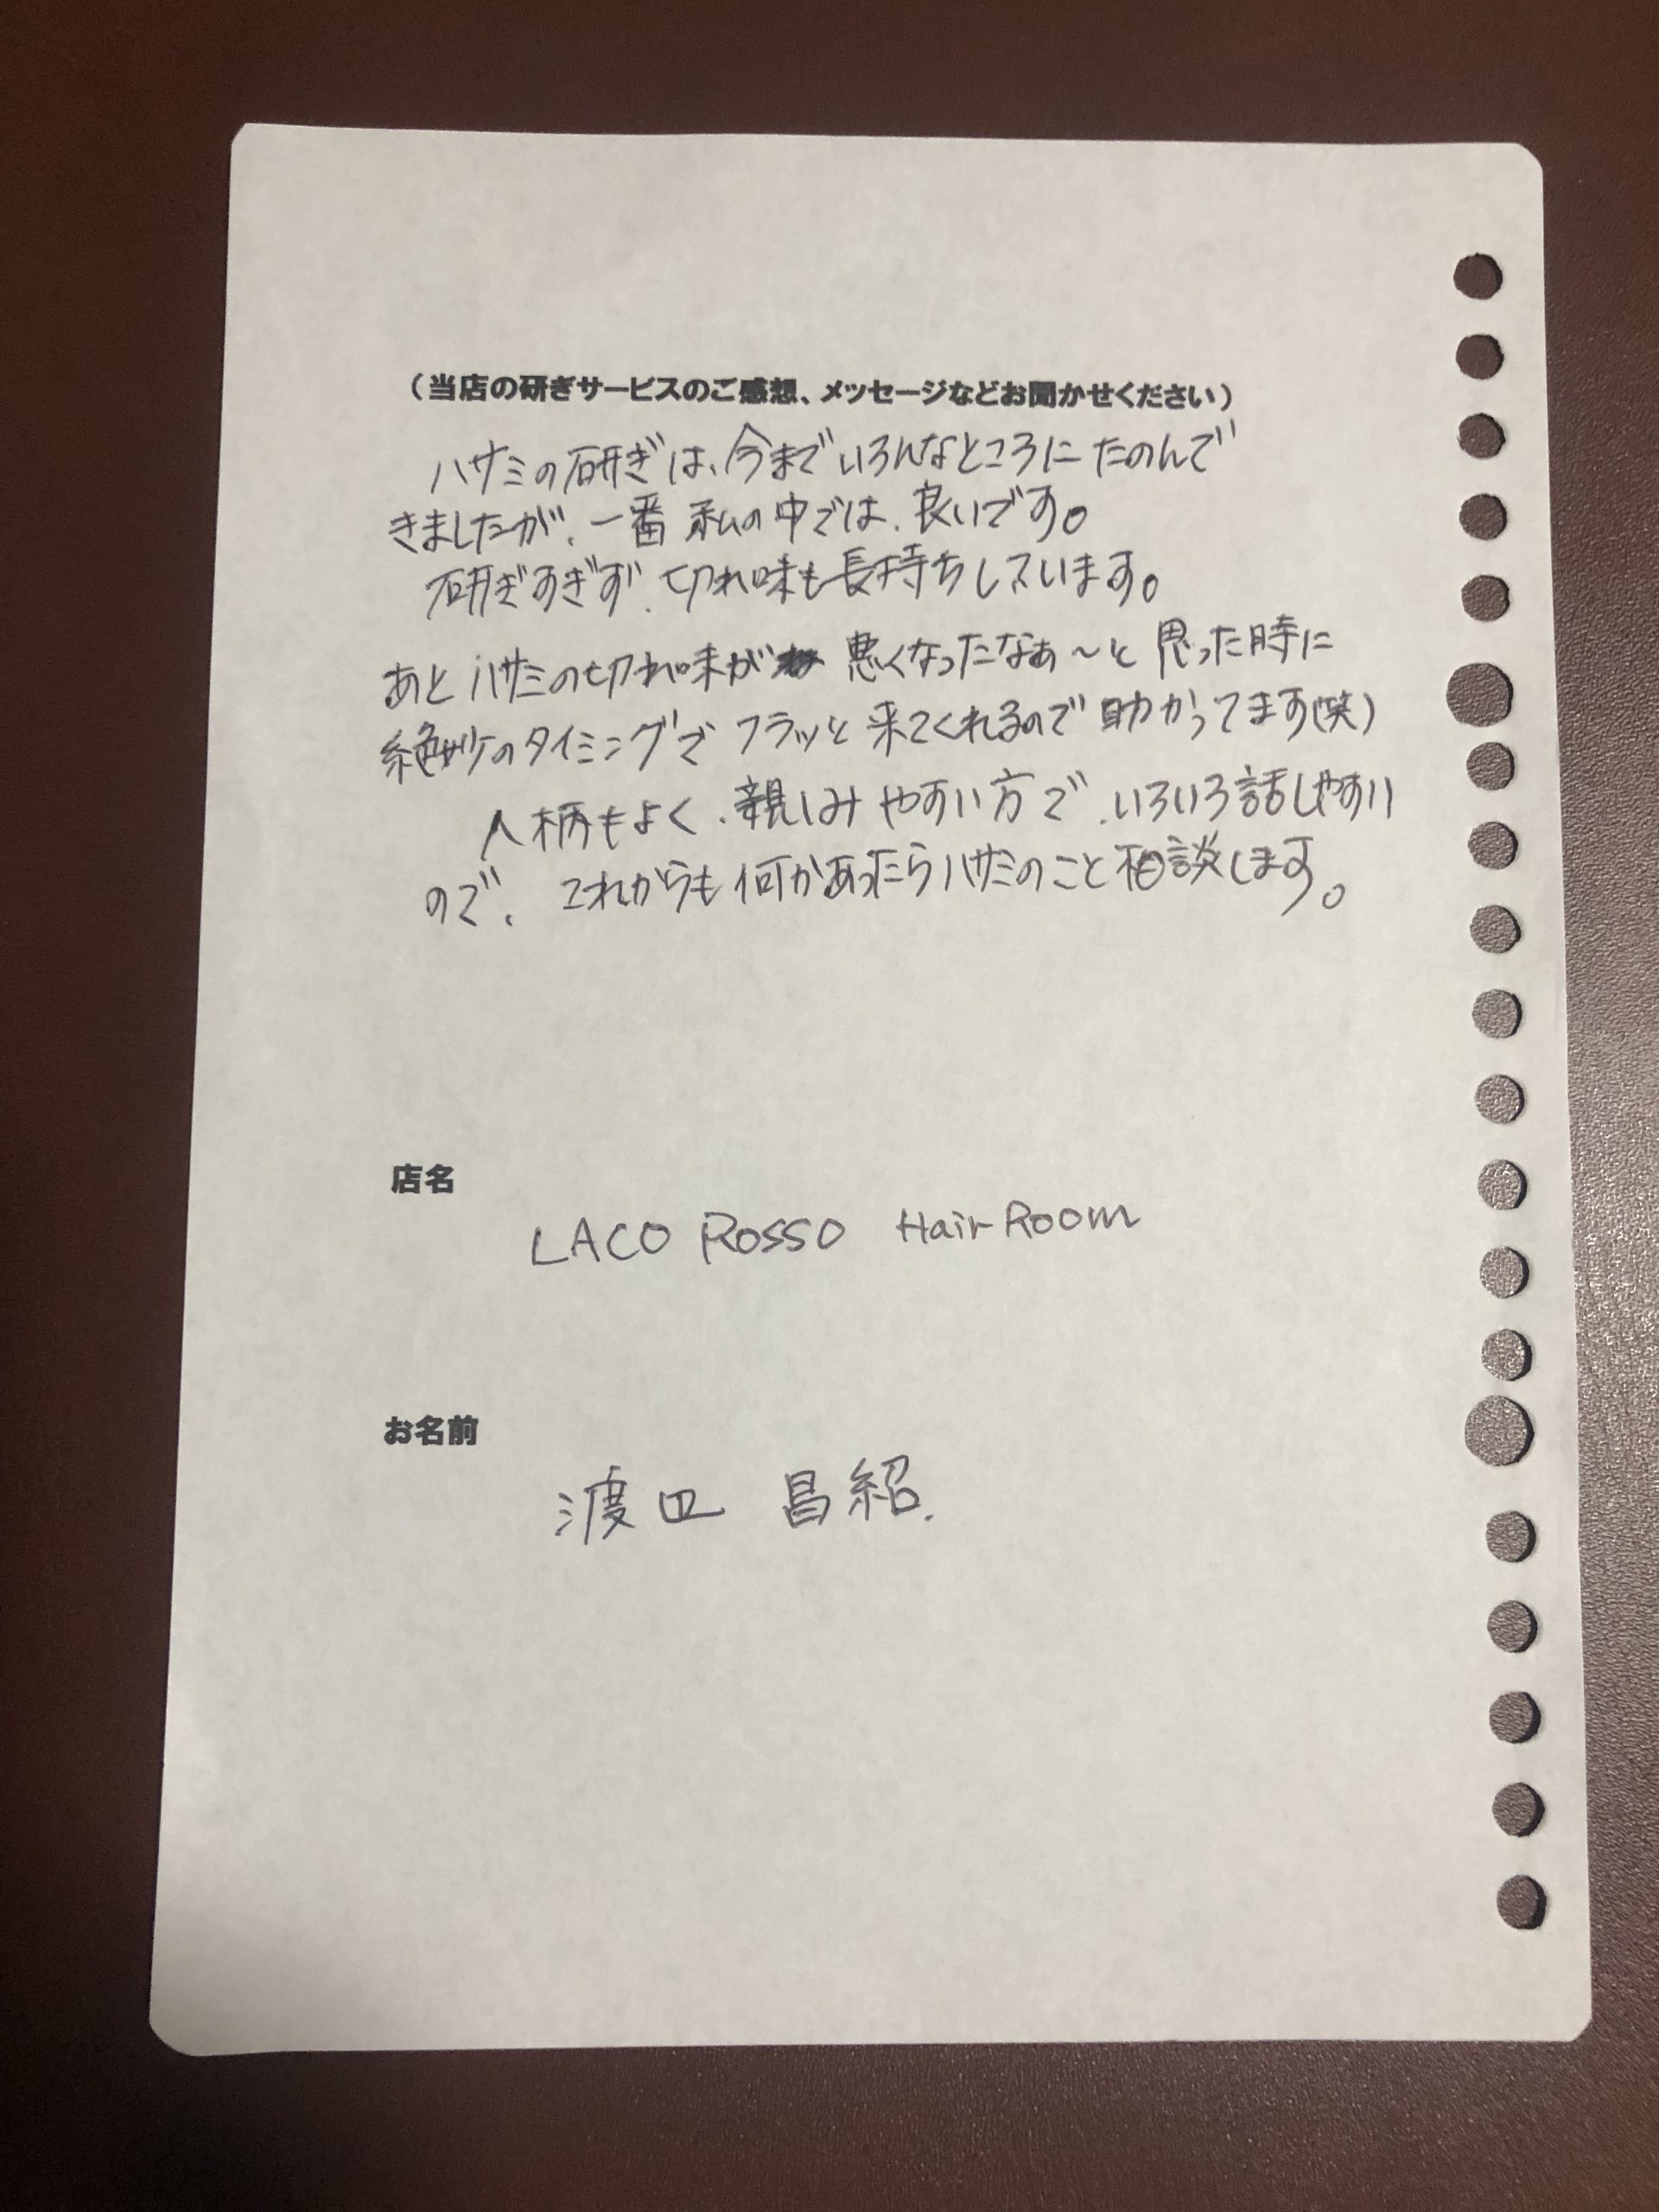 （当店の研ぎサービスのご感想、メッセージなどお聞かせください）
ハサミの研ぎは、今までいろんなところにたのんで
きましたが、一番 私の中では、良いです。
研ぎすぎず、切れ味も長持ちしています。
あと ハサミの切れ味が 悪くなったなぁ〜と 思った時に
絶妙のタイミングで フラッと 来てくれるので 助かってます(笑)
人柄もよく、親しみやすい方で、いろいろ話しやすい
ので、これからも何かあったらハサミのこと相談します。
店名
LACO ROSSO Hair Room
お名前
渡辺 昌紹.